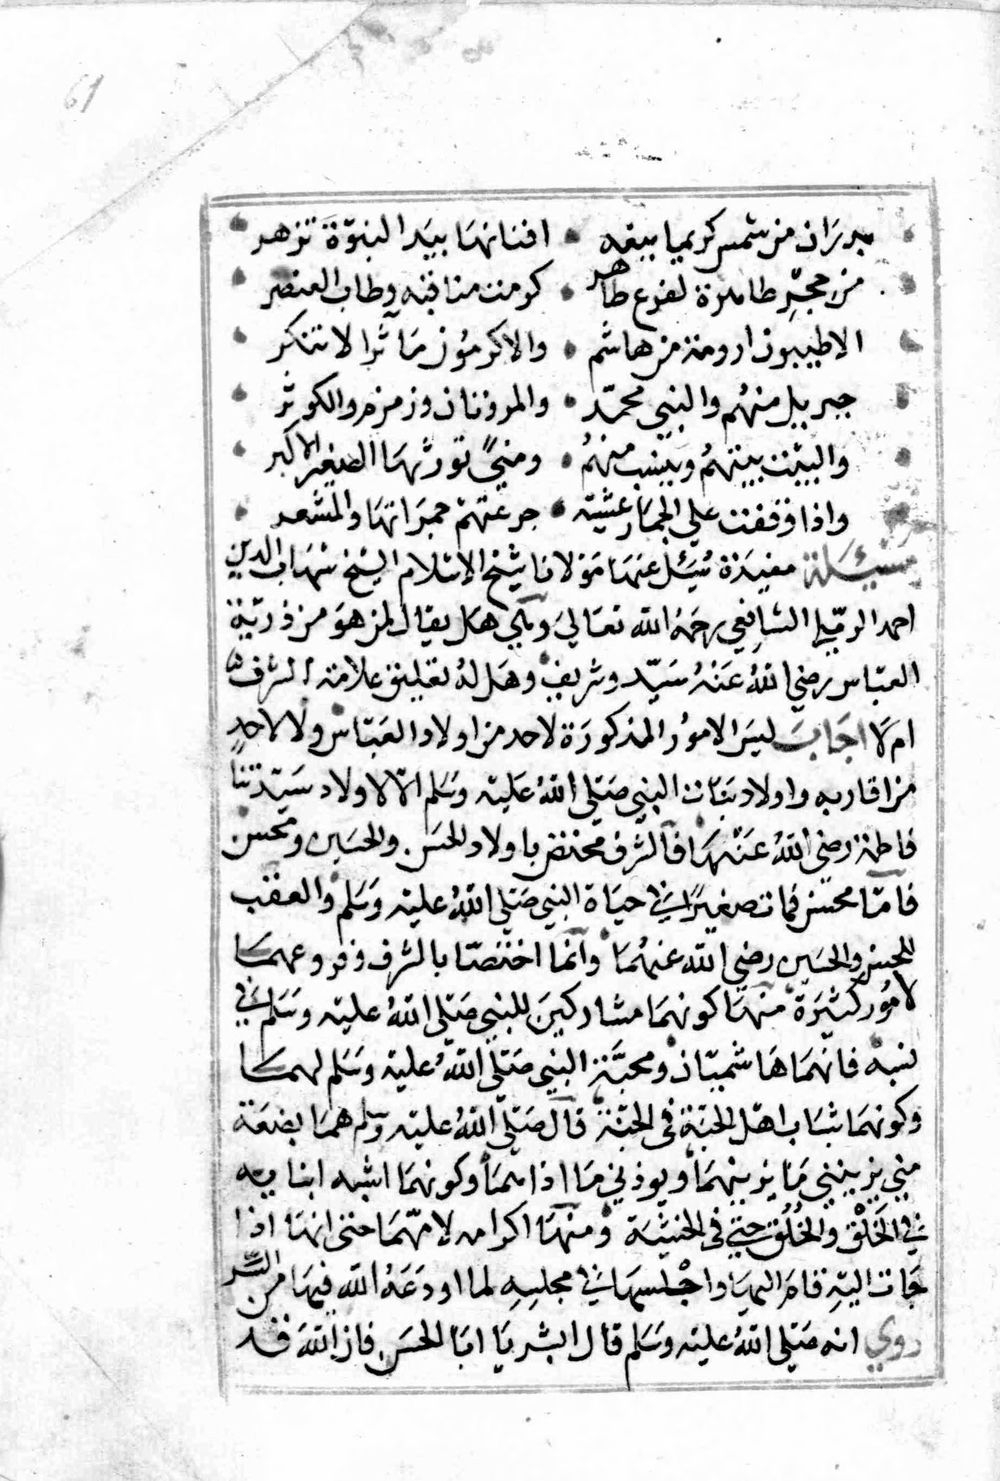 61
بدران من شمس كريما بيعه افنانها بيد النبوّة تزهر
من حجرٍ طاهرة لفرع طاهر كرمت مناقبه وطاب العنصر
الاطيبون ارومة من هاشم والاكرمون مآثرا لا تنكر
جبريل منهم والنبي محمّد والمروتان وزمزم والكوثر
والبيت بيتهم وينسب منهم ومنيً تورثها الصغير الاكبر
واذا وقفت على الجمار عشيّة جرعتهم جمراتها والمشعر
مسئلة مفيدة سُئل عنها مولانا شيخ الاسلام الشيخ شهاب الدين
احمد الرملي الشافعي رحمه الله تعالى وهي هل يقال لمن هو من ذريّة
العبّاس رضي الله عنهُ سيّد وشريف وهل لهُ تعليق علامة الشرف
ام لا اجاب ليس الامور المذكورة لاحد من اولاد العبّاس ولا لاحدٍ
من اقاربه واولاد بنات النبي صلى الله عليه وسلم الّا لاولاد سيّدتنا
فاطمة رضي الله عنها فالشرف مختص باولاد الحسن والحسين ومحسن
فامّا محسن فمات صغيرًا في حياة النبي صلى الله عليه وسلم والعقب
للحسن والحسين رضي الله عنهما وانّما اختصّا بالشرف وفروعهما
لامور كثيرة منها كونهما مشاركين للنبي صلى الله عليه وسلم في
نسبه فانّهما هاشميّان ومحبّة النبي صلى الله عليه وسلم لهما
وكونهما شباب اهل الجنّة في الجنّة قال صلى الله عليه وسلم هما بضعة
مني يريبني ما يريبهما ويوذيني ما اذاهما وكونهما اشبه ابنايه
في الخَلْق والخُلُق حتى في الخشية ومنها اكرامه لامّهما حتى انها اذا
جات اليه قام اليها واجلسها في مجلسه لما اودعه الله فيها من السّر
روي انه صلى الله عليه وسلم قال ابشر يا ابا الحسن فان الله قد